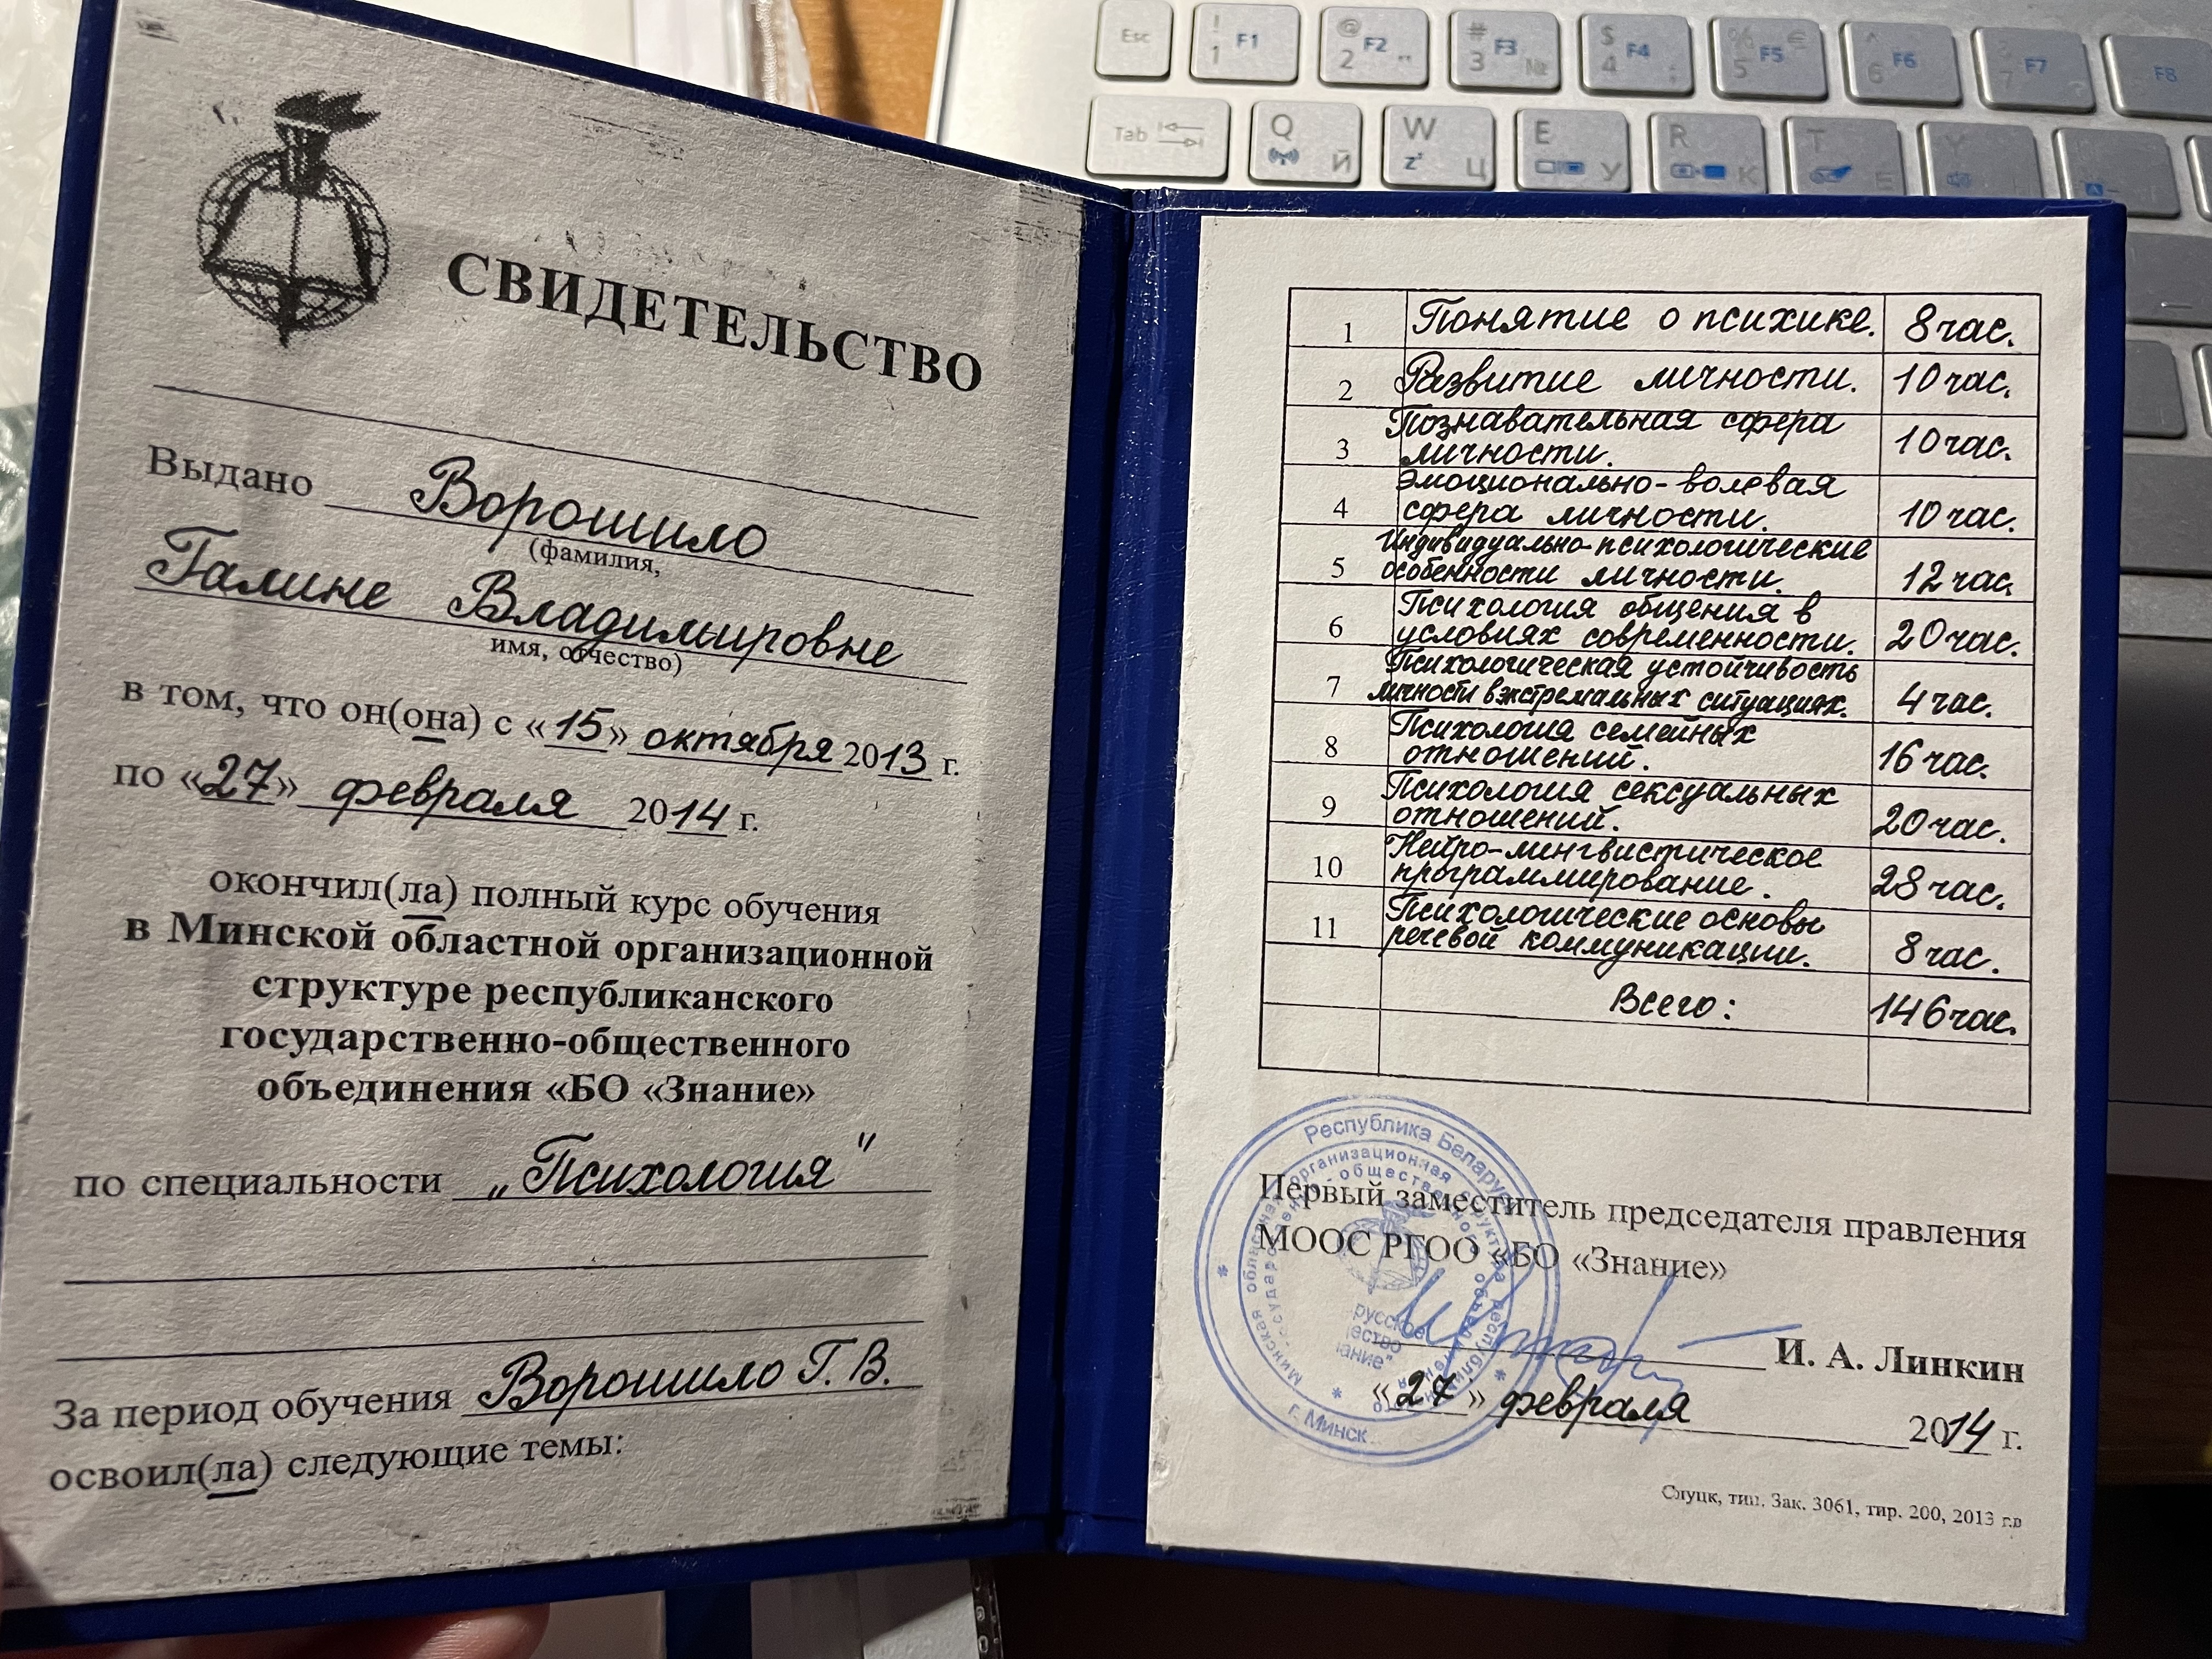 СВИДЕТЕЛЬСТВО
Выдано Ворошило
(фамилия,
Галине Владимировне
имя, отчество)
в том, что он(она) с «15» октября 2013 г.
по «27» февраля 2014 г.
окончил(ла) полный курс обучения
в Минской областной организационной
структуре республиканского
государственно-общественного
объединения «БО «Знание»
по специальности „Психология"
За период обучения Ворошило Г. В.
освоил(ла) следующие темы:
1 Понятие о психике. 8 час.
2 Развитие личности. 10 час.
3 Познавательная сфера
личности. 10 час.
4 Эмоционально-волевая
сфера личности. 10 час.
5 Индивидуально-психологические
особенности личности. 12 час.
6 Психология общения в
условиях современности. 20 час.
7 Психологическая устойчивость
личности в экстремальных ситуациях. 4 час.
8 Психология семейных
отношений. 16 час.
9 Психология сексуальных
отношений. 20 час.
10 Нейро-лингвистическое
программирование. 28 час.
11 Психологические основы
речевой коммуникации. 8 час.
Всего: 146 час.
Республика Беларусь
г. Минск
Первый заместитель председателя правления
МООС РГОО «БО «Знание»
И. А. Линкин
«27» февраля 2014 г.
Слуцк, тип. Зак. 3061, тир. 200, 2013 г.в
Esc ! 1 F1 @ 2 F2 " # 3 F3 № $ 4 F4 ; % 5 F5 € ^ 6 F6 7 F7 F8
Tab Q Й W Ц E У R К T Е Y